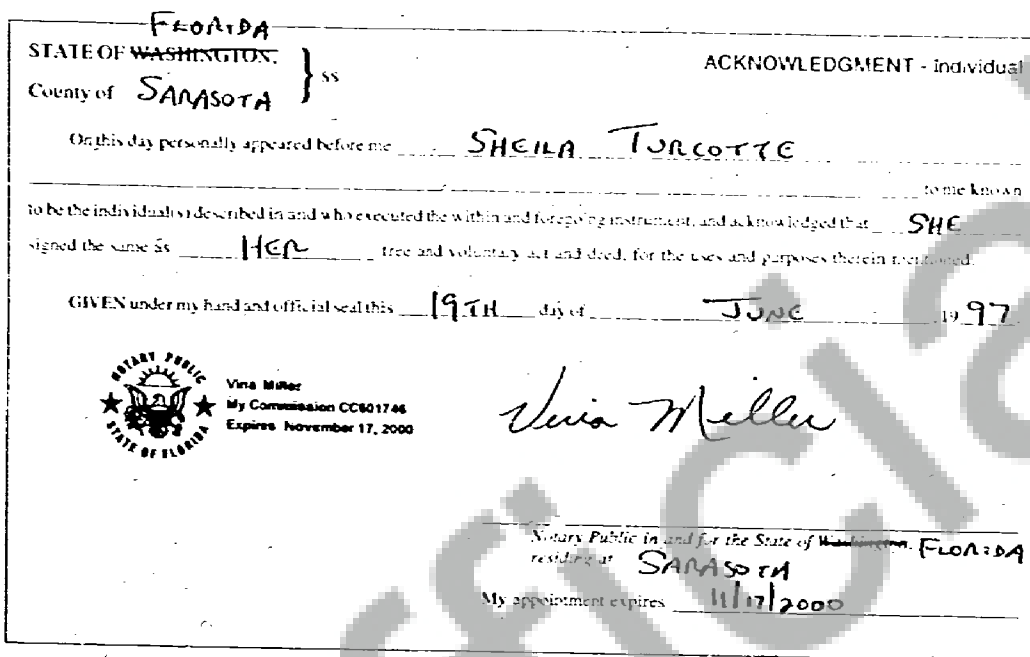 FLORIDA
STATE OF WASHINGTON, } ss
ACKNOWLEDGMENT - Individual
County of SARASOTA
On this day personally appeared before me SHEILA TURCOTTE
to me known
to be the individual(s) described in and who executed the within and foregoing instrument, and acknowledged that SHE
signed the same as HER free and voluntary act and deed, for the uses and purposes therein mentioned.
GIVEN under my hand and official seal this 19TH day of JUNE 19 97
NOTARY PUBLIC
STATE OF FLORIDA
Vina Miller
My Commission CC601746
Expires November 17, 2000
Vina Miller
Notary Public in and for the State of Washington, FLORIDA
residing at SARASOTA
My appointment expires 11/17/2000